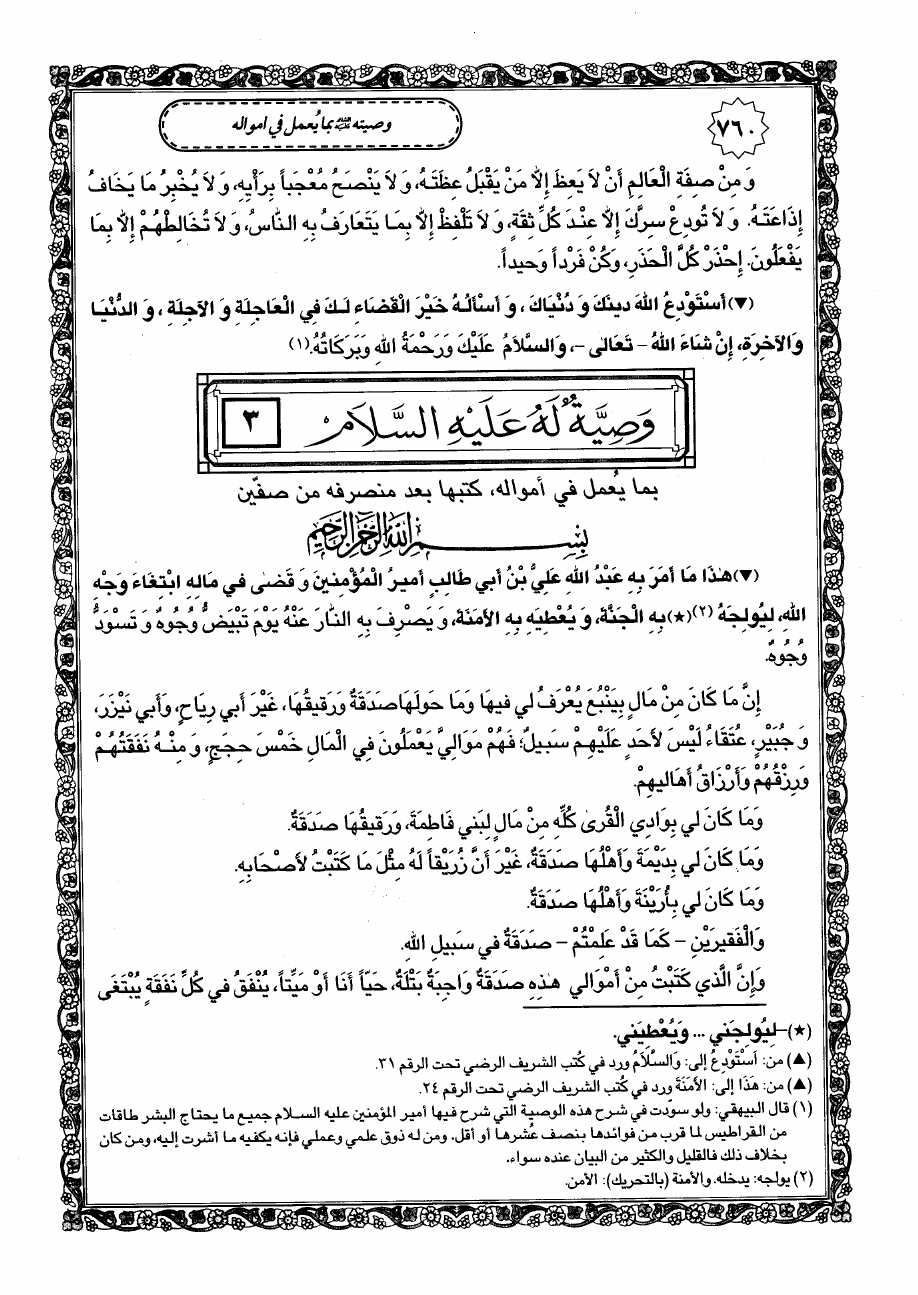 ٧٦٠
وصيته عليه السلام بما يُعمل في أمواله
وَ مِنْ صِفَةِ الْعَالِمِ أَنْ لاَ يَعِظَ إِلاَّ مَنْ يَقْبَلُ عِظَتَهُ، وَ لاَ يَنْصَحَ مُعْجَباً بِرَأْيِهِ، وَ لاَ يُخْبِرُ مَا يَخَافُ
إِذَاعَتَهُ. وَ لاَ تُودِعْ سِرَّكَ إِلاَّ عِنْدَ كُلِّ ثِقَةٍ، وَ لاَ تَلْفِظْ إِلاَّ بِمَا يَتَعَارَفُ بِهِ النَّاسُ، وَ لاَ تُخَالِطْهُمْ إِلاَّ بِمَا
يَفْعَلُونَ. إِحْذَرْ كُلَّ الْحَذَرِ، وَكُنْ فَرْداً وَحيداً.
(▼) أَسْتَوْدِعُ اللهَ دينَكَ وَ دُنْيَاكَ، وَ أَسْأَلُهُ خَيْرَ الْقَضَاءِ لَكَ فِي الْعَاجِلَةِ وَ الآجِلَةِ، وَ الدُّنْيَا
وَ الآخِرَةِ، إِنْ شَاءَ اللهُ – تَعَالى –، وَ السَّلاَمُ عَلَيْكَ وَرَحْمَةُ اللهِ وَبَرَكَاتُهُ.(١)
وَصِيَّةٌ لَهُ عَلَيْهِ السَّلاَم ٣
بما يُعمل في أمواله، كتبها بعد منصرفه من صفّين
بِسْمِ اللهِ الرَّحْمنِ الرَّحيمِ
(▼) هٰذَا مَا أَمَرَ بِهِ عَبْدُ اللهِ عَلِيُّ بْنُ أَبي طَالِبٍ أَميرُ الْمُؤْمِنينَ وَ قَضى في مَالِهِ ابْتِغَاءَ وَجْهِ
اللهِ، لِيُولِجَهُ (٢)(★) بِهِ الْجَنَّةَ، وَ يُعْطِيَهِ بِهِ الأَمَنَةَ، وَ يَصْرِفَ بِهِ النَّارَ عَنْهُ يَوْمَ تَبْيَضُّ وُجُوهٌ وَ تَسْوَدُّ
وُجُوهٌ.
إِنَّ مَا كَانَ مِنْ مَالٍ بِيَنْبُعَ يُعْرَفُ لي فيهَا وَمَا حَولَهَا صَدَقَةٌ وَرَقيقُهَا، غَيْرَ أَبي رِيَاحٍ، وَأَبي نَيْزَر،
وَ جُبَيْرٍ، عُتَقَاءُ لَيْسَ لأَحَدٍ عَلَيْهِمْ سَبيلٌ؛ فَهُمْ مَوَالِيَّ يَعْمَلُونَ فِي الْمَالِ خَمْسَ حِجَجٍ، وَ مِنْهُ نَفَقَتُهُمْ
وَرِزْقُهُمْ وَأَرْزَاقُ أَهَاليهِمْ.
وَمَا كَانَ لي بِوَادِي الْقُرى كُلِّهِ مِنْ مَالٍ لِبَني فَاطِمَةَ، وَرَقيقُهَا صَدَقَةٌ.
وَمَا كَانَ لي بِدَيْمَةَ وَأَهْلُهَا صَدَقَةٌ، غَيْرَ أَنَّ زُرَيْقاً لَهُ مِثْلُ مَا كَتَبْتُ لأَصْحَابِهِ.
وَمَا كَانَ لي بِأُرَيْنَةَ وَأَهْلُهَا صَدَقَةٌ.
وَالْفَقيرَيْنِ – كَمَا قَدْ عَلِمْتُمْ – صَدَقَةٌ في سَبيلِ اللهِ.
وَإِنَّ الَّذي كَتَبْتُ مِنْ أَمْوَالي هٰذِهِ صَدَقَةٌ وَاجِبَةٌ بَتْلَةٌ، حَيّاً أَنَا أَوْ مَيِّتاً، يُنْفَقُ في كُلِّ نَفَقَةٍ يُبْتَغَى
(★)–لِيُولِجَني ... وَيُعْطِيَني.
(▲) من: أَسْتَوْدِعُ إلى: وَالسَّلاَمُ ورد في كُتب الشريف الرضي تحت الرقم ٣١.
(▲) من: هٰذَا إلى: الأَمَنَةَ ورد في كُتب الشريف الرضي تحت الرقم ٢٤.
(١) قال البيهقي: ولو سوّدت في شرح هذه الوصية التي شرح فيها أمير المؤمنين عليه السلام جميع ما يحتاج البشر طاقات
من القراطيس لما قرب من فوائدها بنصف عُشرها أو أقل. ومن له ذوق علمي وعملي فإنه يكفيه ما أشرت إليه، ومن كان
بخلاف ذلك فالقليل والكثير من البيان عنده سواء.
(٢) يولجه: يدخله. والأمنة (بالتحريك): الأمن.